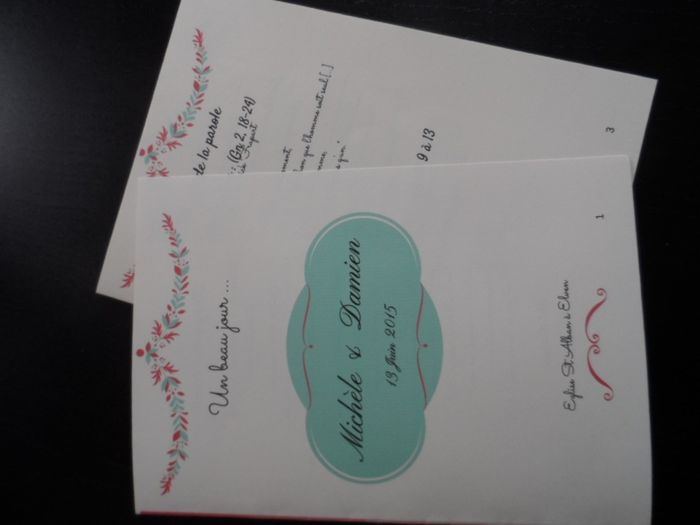 Un beau jour ...
Michèle & Damien
13 Juin 2015
Eglise St Alban à Elven
1
de la parole
(Gn 2, 18-24)
que l'homme soit seul [..]
9 à 13
3